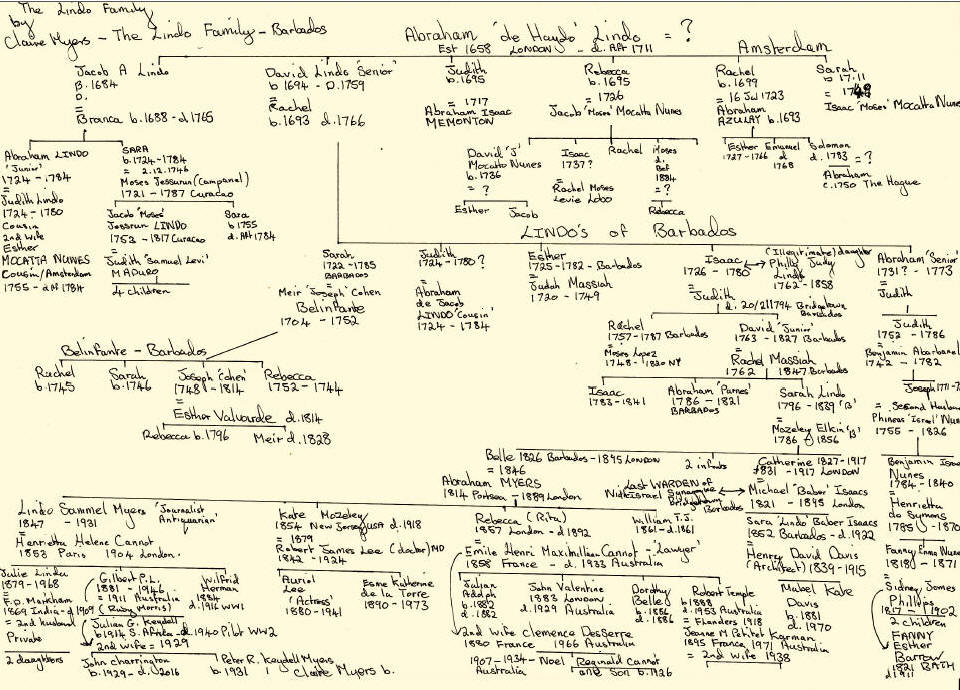 The Lindo Family
by
Claire Myers – The Lindo Family – Barbados
Abraham 'de Haydo' Lindo = ?
Est 1658 LONDON – d. Aft 1711
Amsterdam
Jacob A Lindo
B. 1684
D.
=
Branca b.1688 - d.1765
David Lindo 'Senior'
b 1694 - D.1759
=
Rachel
b.1693 d.1766
Judith
b.1695
= 1717
Abraham Isaac
MEMONTON
Rebecca
b.1695
= 1726
Jacob 'Moses' Mocatta Nunes
Rachel
b.1699
= 16 Jul 1723
Abraham
AZULAY b.1693
Sarah
b 17.11
Isaac 'Moses' Mocatta Nunes
Abraham LINDO
'Junior'
1724 - 1784
=
Judith Lindo
1724 - 1780
Cousin
2nd Wife
Esther
MOCATTA NUNES
Cousin/Amsterdam
1755 - aft 1784
SARA
b.1724-1784
= 2.12.1746
Moses Jessurun (Campanel)
1721 - 1787 Curacao
Jacob 'Moses'
Jessrun LINDO
1753 - 1817 Curacao
=
Judith 'Samuel Levi'
MADURO
4 children
Sara
b 1755
d. Aft 1784
David 'J'
Mocatta Nunes
b.1736
= ?
Esther Jacob
Isaac
1737?
=
Rachel Moses
Levie Lobo
Rachel
Moses
d.
Bef
1884
= ?
Rebecca
Esther
1727-1766
Emanuel
d
1768
Solomon
d. 1783 = ?
Abraham
c.1750 The Hague
LINDO'S of Barbados
Sarah
1722 - 1785
BARBADOS
=
Meir 'Joseph' Cohen
Belinfante
1704 - 1752
Judith
1724-1780?
=
Abraham
de Jacob
LINDO 'Cousin'
1724 - 1784
Esther
1725-1782 - Barbados
=
Judah Massiah
1720 - 1749
Isaac
1726 - 1780
=
Judith
d. 20/2/1794 Bridgetown
Barbados
(Illegitimate) daughter
Philly Judy
Lindo
1762 - 1858
Abraham 'Senior'
1731? - 1773
=
Judith
Judith
1752 - 1786
=
Benjamin Abarbanel
1742 - 1782
Rachel
1757-1787 Barbados
=
Moses Lopez
1748 - 1820 NY
David 'Junior'
1763 - 1827 Barbados
=
Rachel Massiah
1762 1847 Barbados
Belinfante - Barbados
Rachel
b.1745
Sarah
b.1746
Joseph 'Cohen'
1748 - 1814
=
Esther Valvourde d.1814
Rebecca
1752 - 1744
Rebecca b.1796 Meir d.1828
Isaac
1783-1841
Abraham 'Parnes'
1786 - 1821
BARBADOS
Sarah Lindo
1796 - 1839 'B'
=
Mozeley Elkin 'B'
1786 - 1856
= Second Husband
Phineas 'Israel' Nunes
1755 - 1826
Belle 1826 Barbados - 1895 LONDON
= 1846
Abraham MYERS
1814 Portsea - 1889 London
2 infants
Catherine 1827-1917
- 1917 LONDON
=
Michael 'Baber' Isaacs
1821 - 1895 London
Last WARDEN of
Nidhe Israel Synagogue
Bridgetown
Barbados
Benjamin Israel
Nunes
1784 - 1840
=
Henrietta
de Symons
1785 - 1870
Lindo Sammel Myers 'Journalist
Antiquarian'
1847 - 1931
=
Henrietta Helene Cannot
1853 Paris 1904 London.
Kate Mozeley
1854 New Jersey USA d.1918
= 1879
Robert James Lee (doctor) MD
1842 - 1924
Rebecca (Rita)
1857 London - d 1892
=
Emile Henri Maximillien Cannot - Lawyer
1858 France - d. 1933 Australia
William T.J.
1861-1861
Sara 'Lindo' Baber Isaacs
1852 Barbados - d.1922
=
Henry David Davis
(Architect) 1839-1915
Fanny Emma Nunes
1818 - 1871
=
Sidney Jones
Phillips
1817 1902
2 children
FANNY
Esther
Barrow
1821 BATH
d 1911
Julie Linda
1879-1968
=
F.D. Markham
1869 India - d 1909
= 2nd husband
Private
2 daughters
Gilbert P.L.
1881 - 1946
= 1911 Australia
(Ruby Morris)
Julian G. Keydell
b 1914 S. Africa - d. 1940 Pilot WW2
2nd wife = 1929
Wilfrid
Herman
1884
d.1916 WW1
John Charrington
b.1929 - d. 2016
Peter R. Keydell Myers
b.1931
Claire Myers b.
Auriol
Lee
'Actress'
1880-1941
Esme Katherine
de la Torre
1890 - 1973
Julian
Adolph
b.1882
d.1882
John Valentine
1883 London
d.1929 Australia
Dorothy
Belle
b.1886
d.1886
Robert Temple
b 1888
d.1953 Australia
= Flanders 1918
Jeanne M Petitet Karman
1895 France 1971 Australia
= 2nd Wife 1938
Mabel Kate
Davis
b.1881
d.1970
2nd Wife Clemence DesSerre
1880 France 1966 Australia
1907-1934 - Noel
Australia
Reginald Cannot
one son b.1926